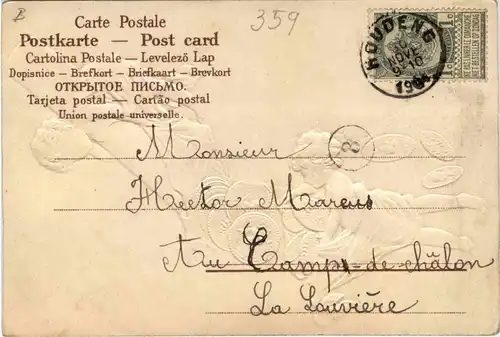 B
359
Carte Postale
Postkarte — Post card
Cartolina Postale — Levelező Lap
Dopisnice — Brefkort — Briefkaart — Brevkort
ОТКРЫТОЕ ПИСЬМО.
Tarjeta postal — Cartão postal
Union postale universelle.
HOUDENG
NOVE
1
NE PAS LIVRER LE DIMANCHE
NIET BESTELLEN OP ZONDAG
8
Monsieur
Hector Marcus
Au Camp-de-châlon
La Louvière